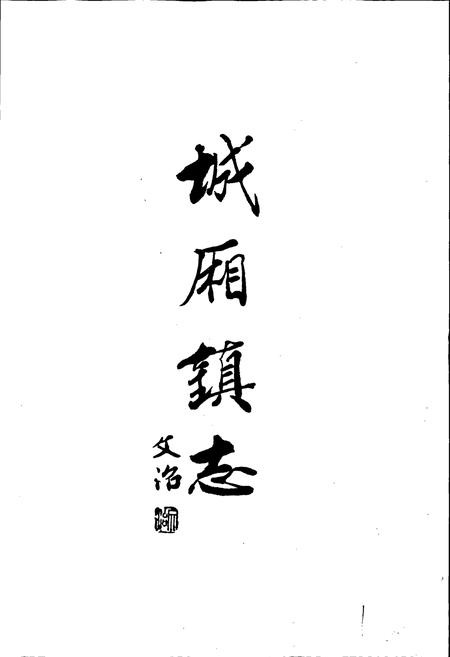 城厢鎮志
文治